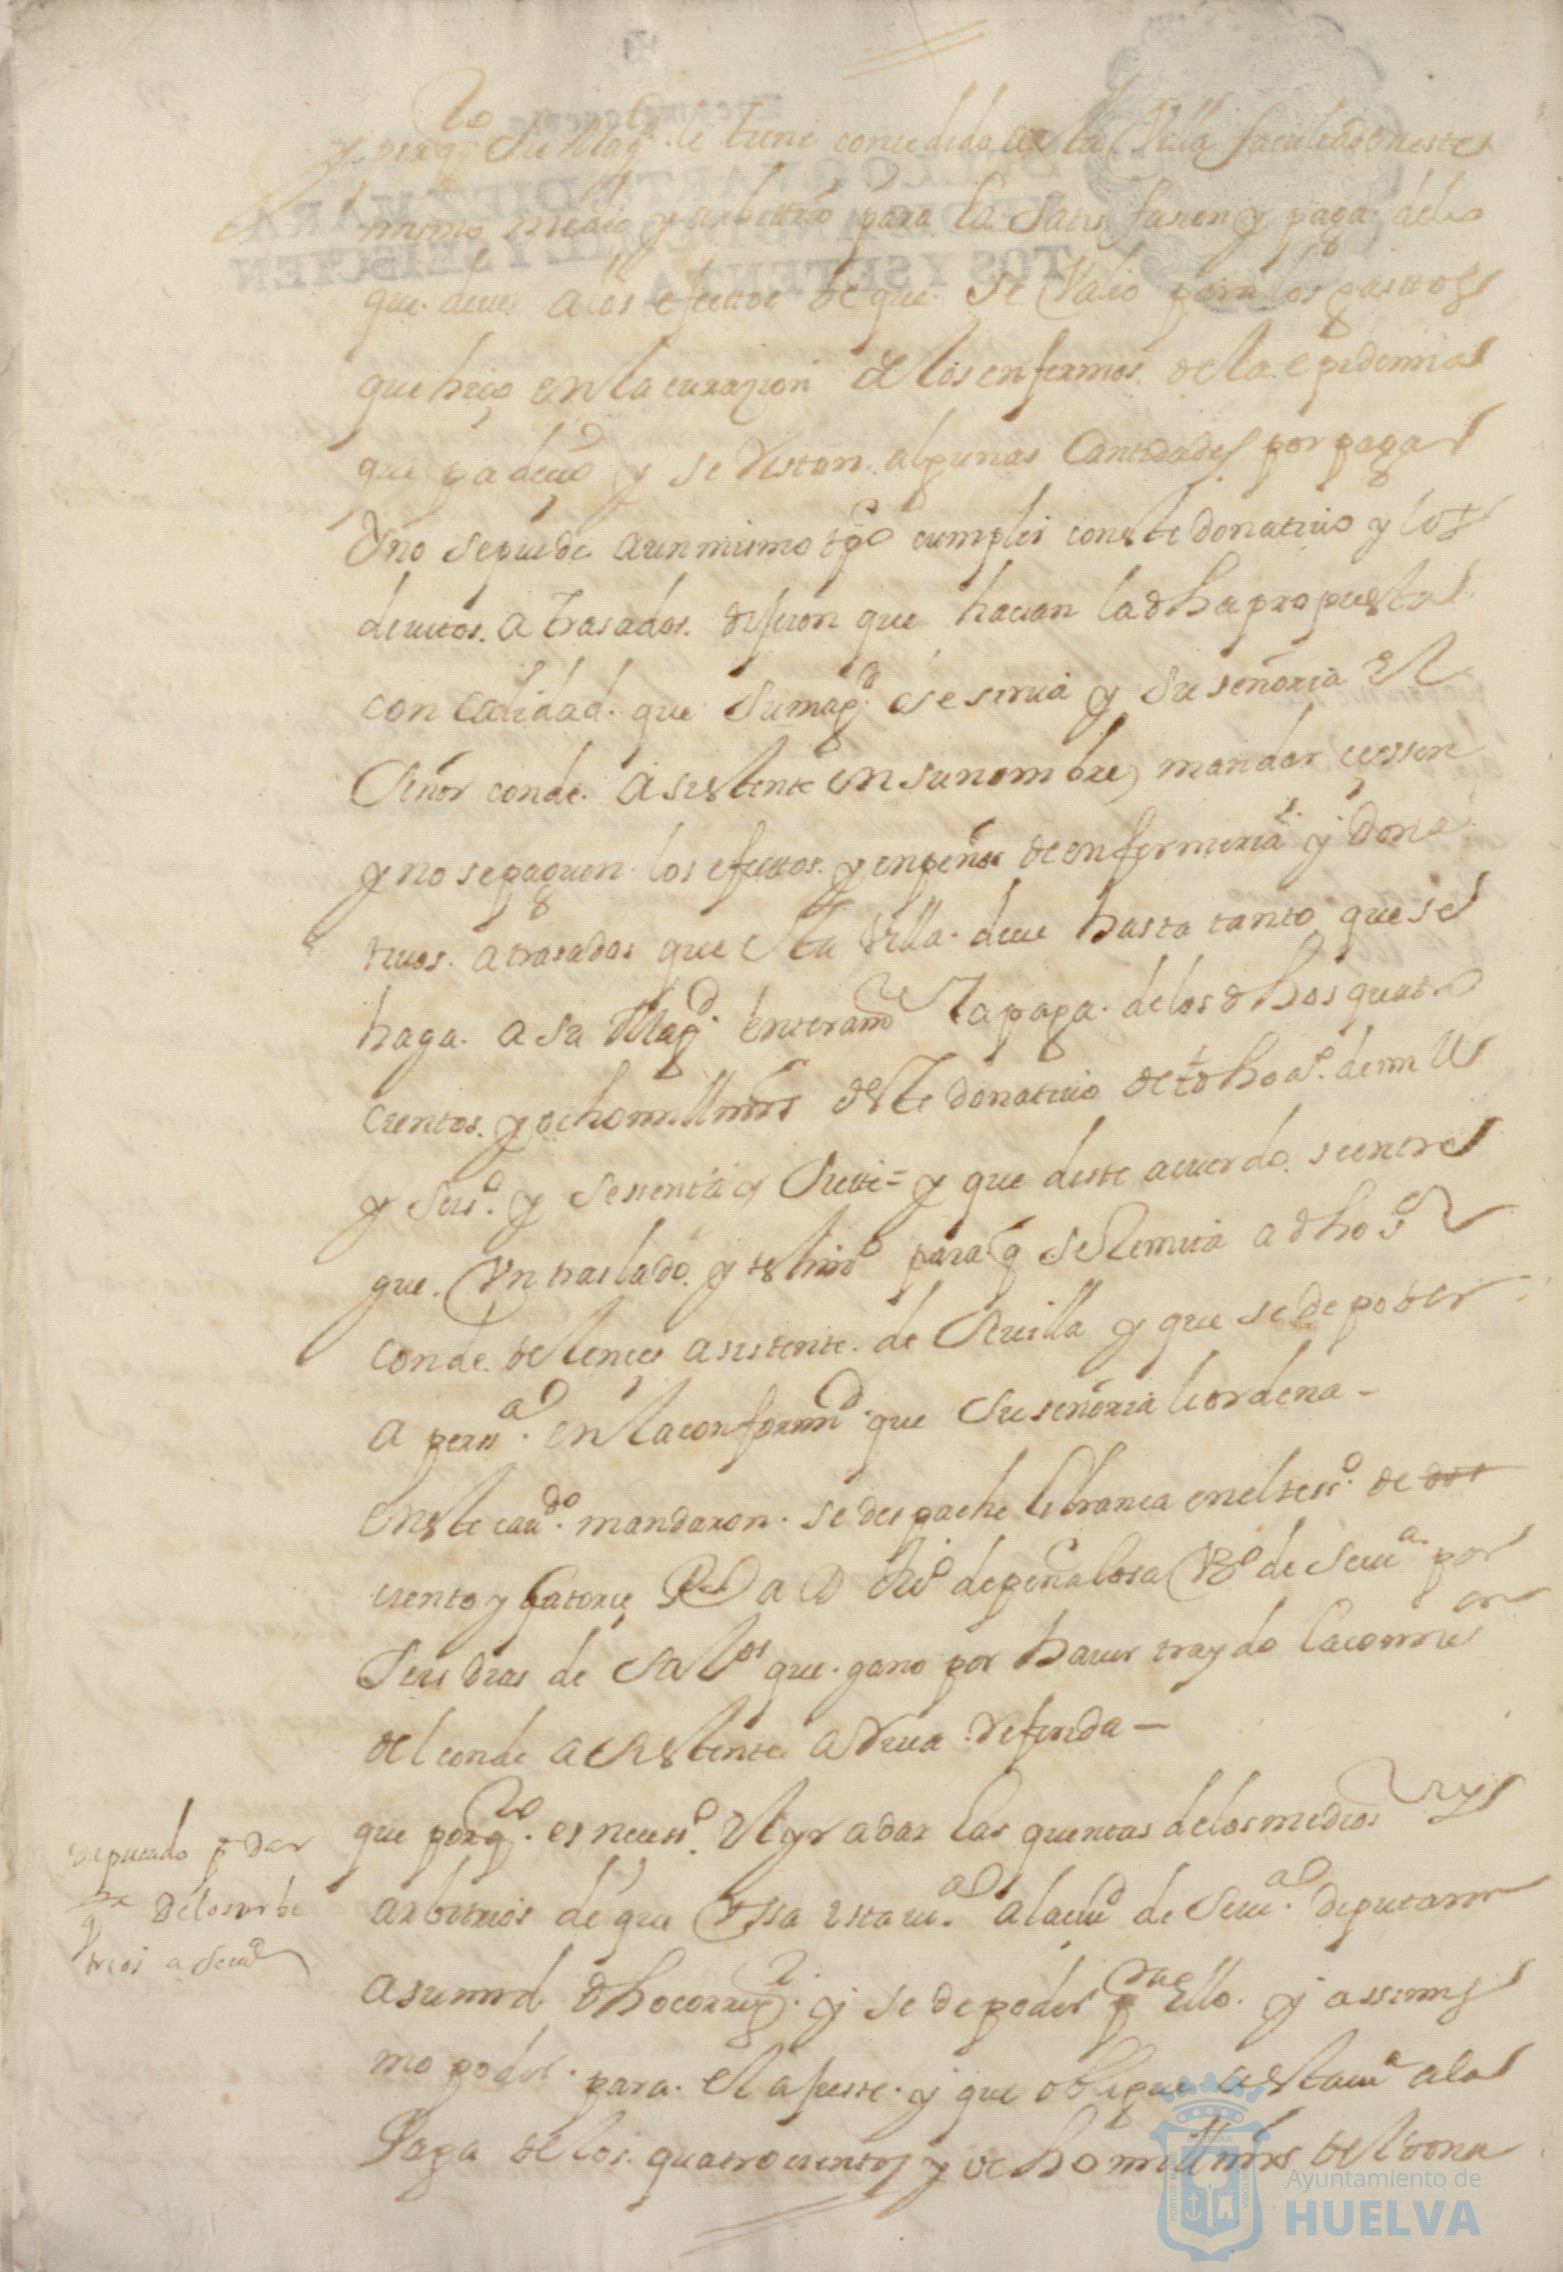 y porq̃ Su Magd. le tiene concedido a esta Villa facultad en este
mismo medio y arbittrio para la satisfasion y paga de lo
que deue a los efecttos de que se Valio para los gasttos
que hiço en la curazion de los enfermos de la epidemia
que padecio y se restan algunas Cantidades por pagar
y no se puede a un mismo tpo cumplir con este donatiuo y los
deuitos atrasados dijeron que hacian la dha propuesta
con calidad que su magd. se sirua y su señoria el
Señor conde asistente en su nombre mandar cessen
y no se paguen los efecttos y enpeños de enfermeria y dona
tiuos atrasados que esta Villa deue hasta tanto que se
haga a su Magd. enteramte la paga de los dhos quatro
cientos y ocho mill mrs deste donatiuo de todo dho aº. de mill
y seisº. y sesenta y siete = y que deste acuerdo se entre
gue Vn traslado y testimº para q se Remita a dho sr
conde de lences asistente de Seuilla y que se de poder
a persª. en la conformd. que su señoria lo ordena -
En este caudo. mandaron se despache librança en el tessº. de dos
ciento y catorce Rs a D luis de peñalosa Vº de Seuª. por
seis dias de salos que gano por hauer traydo la comion
del conde asistente a Riua Referida —
que porq̃. es necessº. Yr a dar las quentas de los medios y
arbitrios de que Vssa esta ciud. a la ciud de Seuª. diputaron
a su md dho corregr. y se de poder pª Ello. y assimis
mo poder para el ajuste y que oblique a esta ciud a la
Paga de los quatrocientos y ocho mill mrs del dona
Diputado pª dar
qtas de los arbi
trios a Seuª
Ayuntamiento de
HUELVA